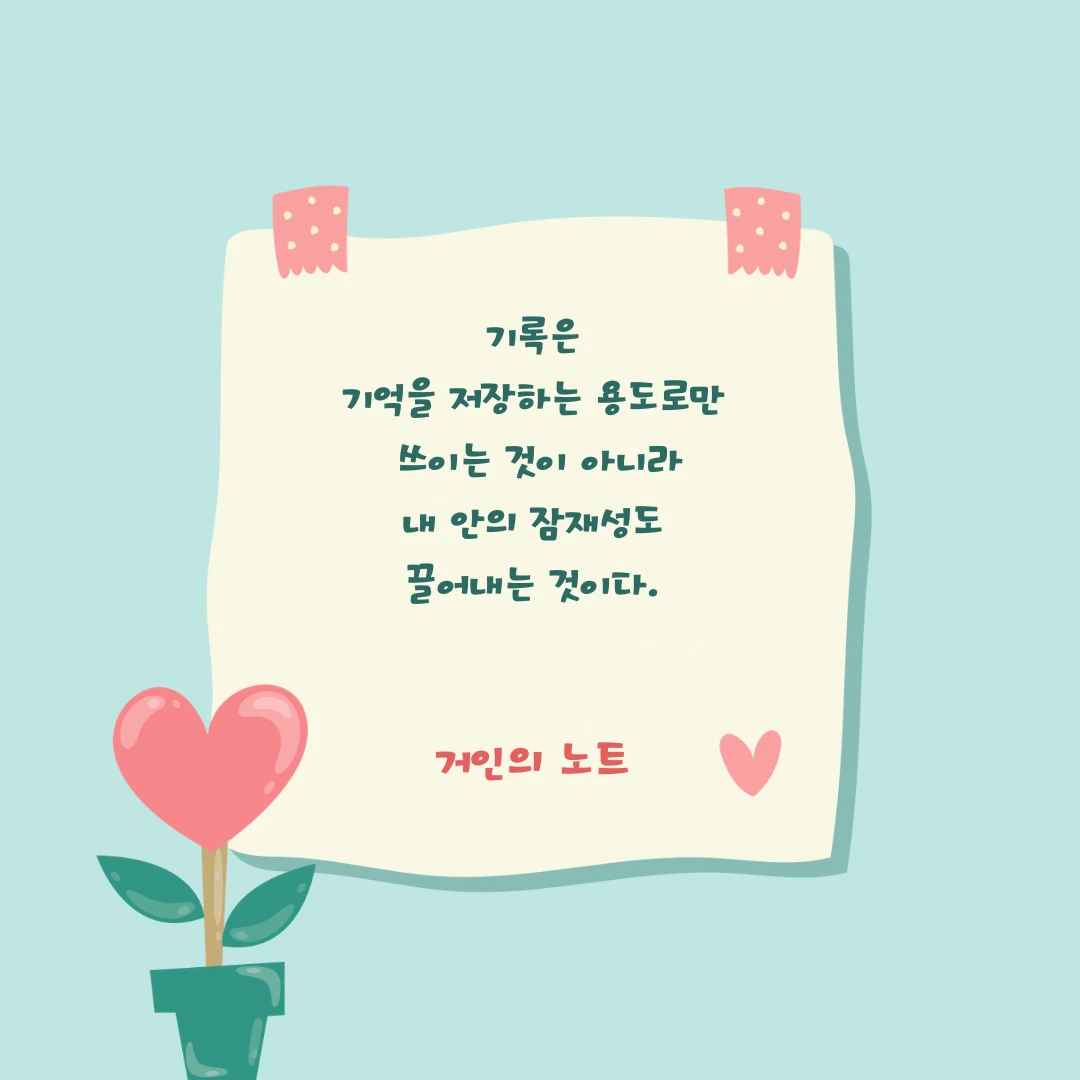 기록은
기억을 저장하는 용도로만
쓰이는 것이 아니라
내 안의 잠재성도
끌어내는 것이다.
거인의 노트